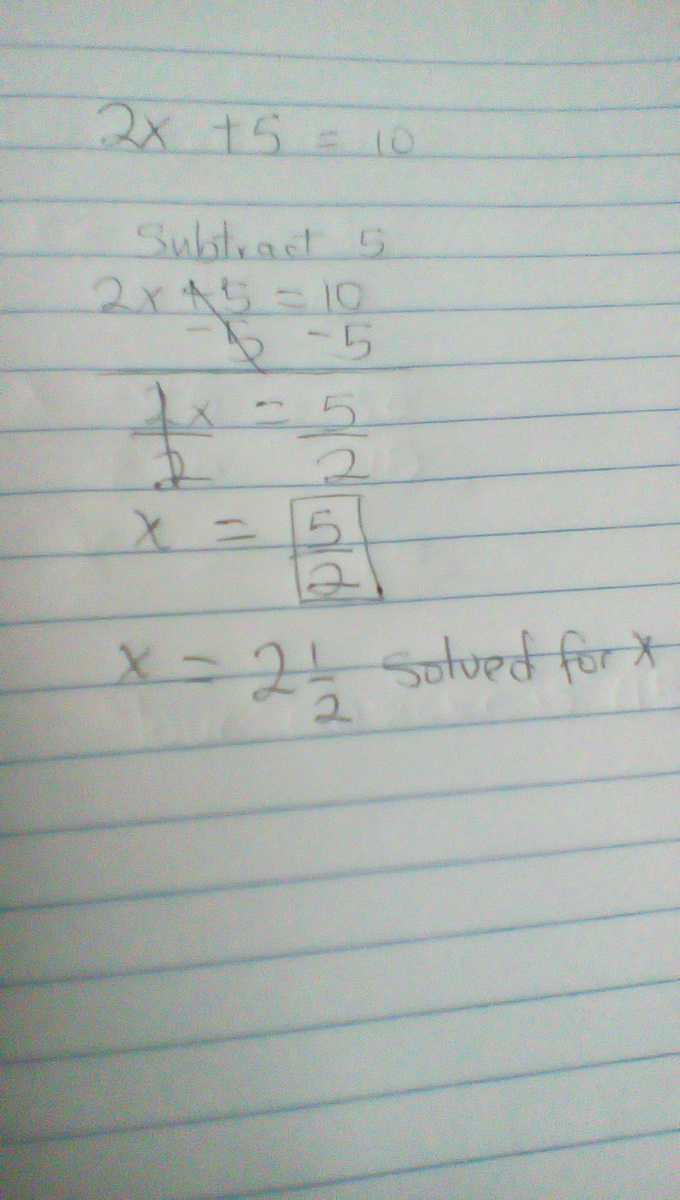 2x + 5 = 10
Subtract 5
2x + 5 = 10
- 5 - 5
2x = 5
2 2
x = 5
2
x = 2 1/2 solved for x